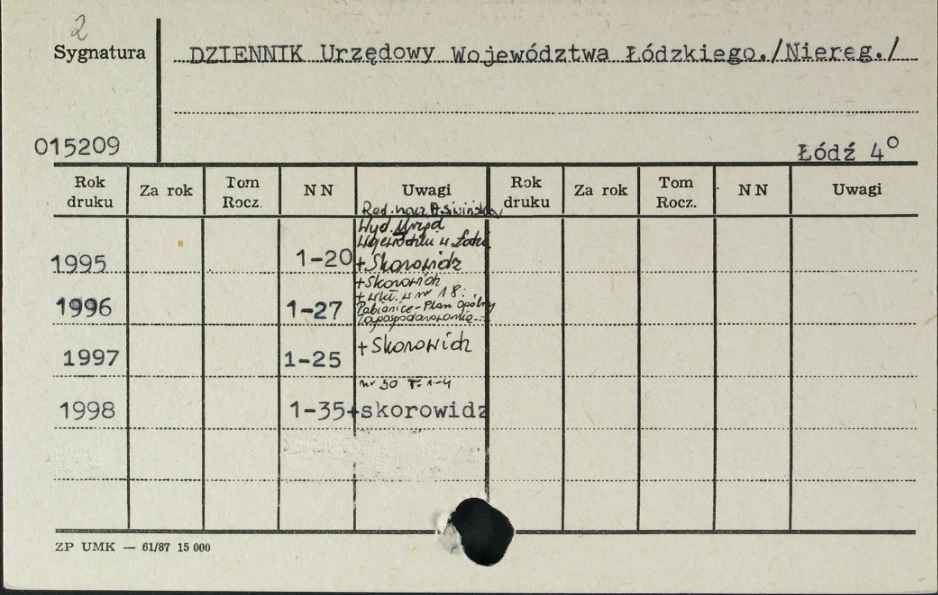 2
Sygnatura DZIENNIK Urzędowy Województwa Łódzkiego./Niereg./
015209 Łódź 4°
Rok druku Za rok Tom Rocz. NN Uwagi Rok druku Za rok Tom Rocz. NN Uwagi
Red. nacz.
Wyd. Urząd
Wojewódzki w Łodzi
1995 1-20 +Skorowidz
+Skorowidz
+ wkł. w nr 18:
1996 1-27 Pabianice-Plan Ogólny
Zagospodarowania
1997 1-25 +Skorowidz
nr 30 T. 1-4
1998 1-35+skorowidz
ZP UMK — 61/87 15 000